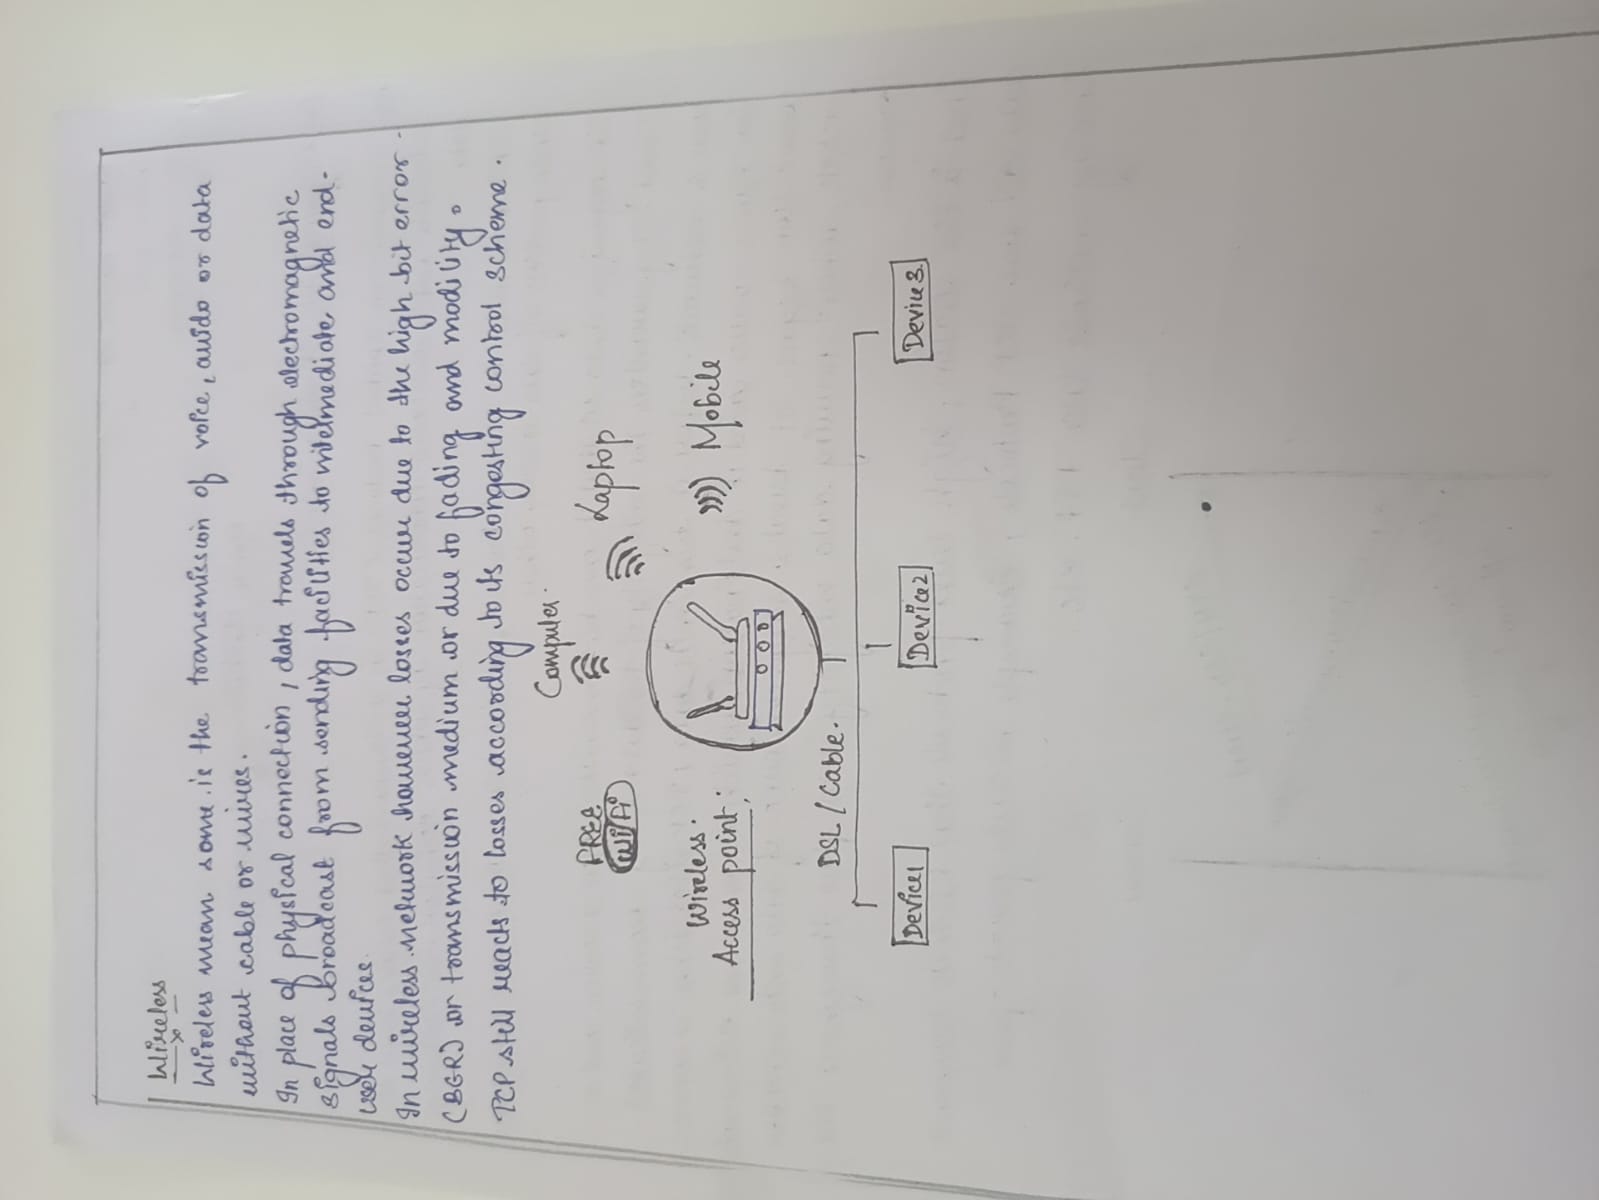 Wireless
Wireless mean some is the transmission of voice, auido or data
without cable or wires.
In place of physical connection, data travels through electromagnetic
signals broadcast from sending facilities to intermediate and end-
user devices.
In wireless network however losses occur due to the high bit error
(BER) or transmission medium or due to fading and modility.
TCP still reacts to losses according to its congesting control scheme.
Computer
FREE
WiFi
Laptop
Wireless
Access point;
Mobile
DSL / Cable.
Device1
Device2
Device3